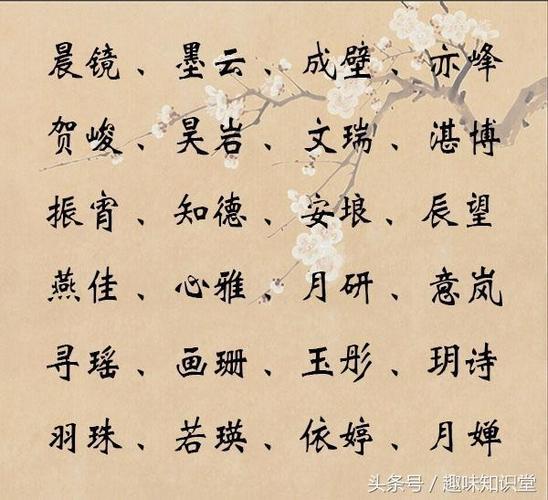 晨镜、墨云、成壁、亦峰
贺峻、昊岩、文瑞、湛博
振宵、知德、安埌、辰望
燕佳、心雅、月研、意岚
寻瑶、画珊、玉彤、玥诗
羽珠、若瑛、依婷、月婵
头条号／趣味知识堂